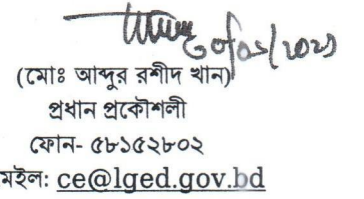 (মোঃ আব্দুর রশীদ খান)
প্রধান প্রকৌশলী
ফোন- ৫৮১৫২৮০২
মইল: ce@lged.gov.bd